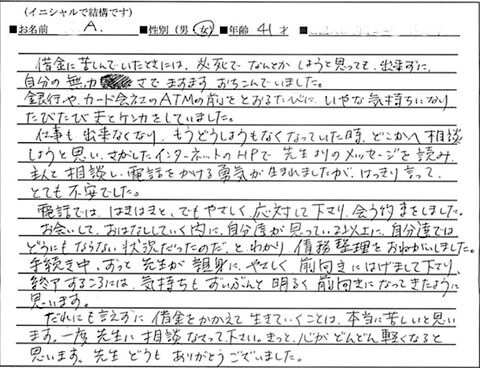 (イニシャルで結構です)
■お名前 A. ■性別(男・女) ■年齢 41 才
借金に苦しんでいたときには、必死でなんとかしようと思っても、出来ずに、
自分の無力さでますますおちこんでいました。
銀行や、カード会社のATMの前をとおるたびに、いやな気持ちになり
たびたび夫とケンカをしていました。
仕事も出来なくなり、もうどうしようもなくなっていた時、どこかへ相談
しようと思い、さがしたインターネットのHPで先生よりのメッセージを読み、
主人と相談し、電話をかける勇気が生まれましたが、はっきり言って、
とても不安でした。
電話では、はきはきと、でもやさしく応対して下さり、会う約束をしました。
お会いして、おはなししていく内に、自分達が思っている以上に、自分達では
どうにもならない状況だったのだ、とわかり、債務整理をおねがいしました。
手続き中、ずっと先生が親身に、やさしく前向きにはげまして下さり、
終了するころには、気持ちもずいぶんと明るく前向きになってきたように
思います。
だれにも言えずに借金をかかえて生きていくことは、本当に苦しいと思い
ます。一度先生に相談なさって下さい。きっと、心がどんどん軽くなると
思います。先生どうもありがとうございました。